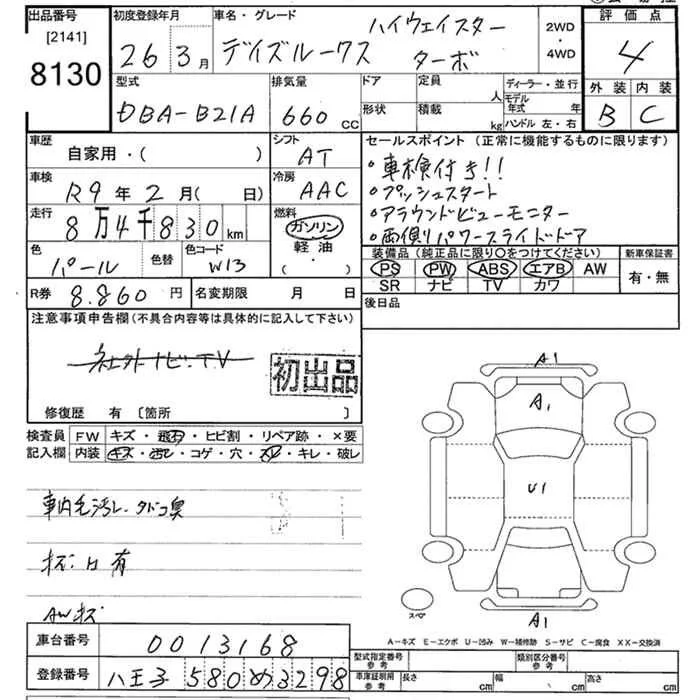 出品番号 [2141] 8130
初度登録年月 26年 3月
車名・グレード デイズルークス ハイウェイスター ターボ
2WD・4WD
評価点 4
外装 B 内装 C
型式 DBA-B21A
排気量 660 cc
ドア 形状
定員 人 積載 kg
ディーラー・並行
モデル年式 年
ハンドル 左・右
車歴 自家用・( )
シフト AT
車検 R9年 2月( 日)
冷房 AAC
走行 8万4千830km
燃料 ガソリン 軽油 ・( )
色 パール 色替 色コード W13
R券 8.860円 名変期限 月 日
セールスポイント (正常に機能するものに限ります)
・車検付き!!
・プッシュスタート
・アラウンドビューモニター
・両側パワースライドドア
装備品 (純正品に限り○をつけてください)
PS PW ABS エアB AW
SR ナビ TV カワ
新車保証書 有・無
後日品
注意事項申告欄 (不具合内容等は具体的に記入して下さい)
社外ナビ.TV
初出品
修復歴 有 〔箇所 〕
検査員記入欄 FW キズ・飛石・ヒビ割・リペア跡・×要
内装 キズ・汚レ・コゲ・穴・スレ・キレ・破レ
車内毛汚レ.タバコ臭
AWキズ
車台番号 0013168
登録番号 八王子 580 め 3298
A1
A1
U1
A1
スペア
A-キズ E-エクボ U-凹み W-補修跡 S-サビ C-腐食 XX-交換済
型式指定番号 参考 類別区分番号 参考
車庫証明用 参考 長さ cm 幅 cm 高さ cm